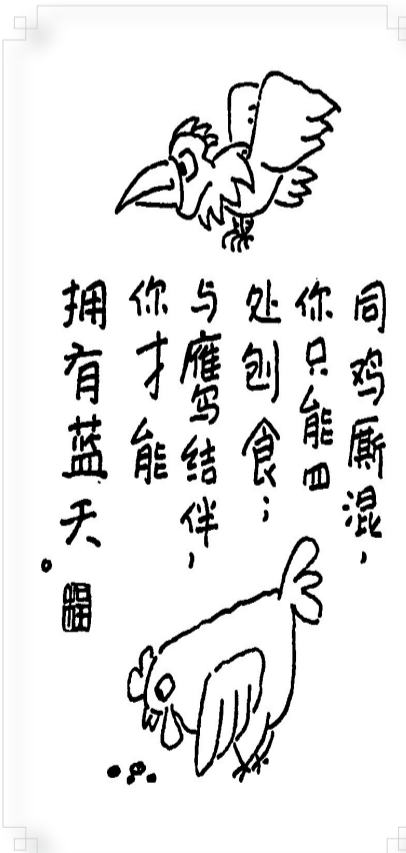 同鸡厮混，
你只能四
处刨食；
与雁鸟结伴，
你才能
拥有蓝天。